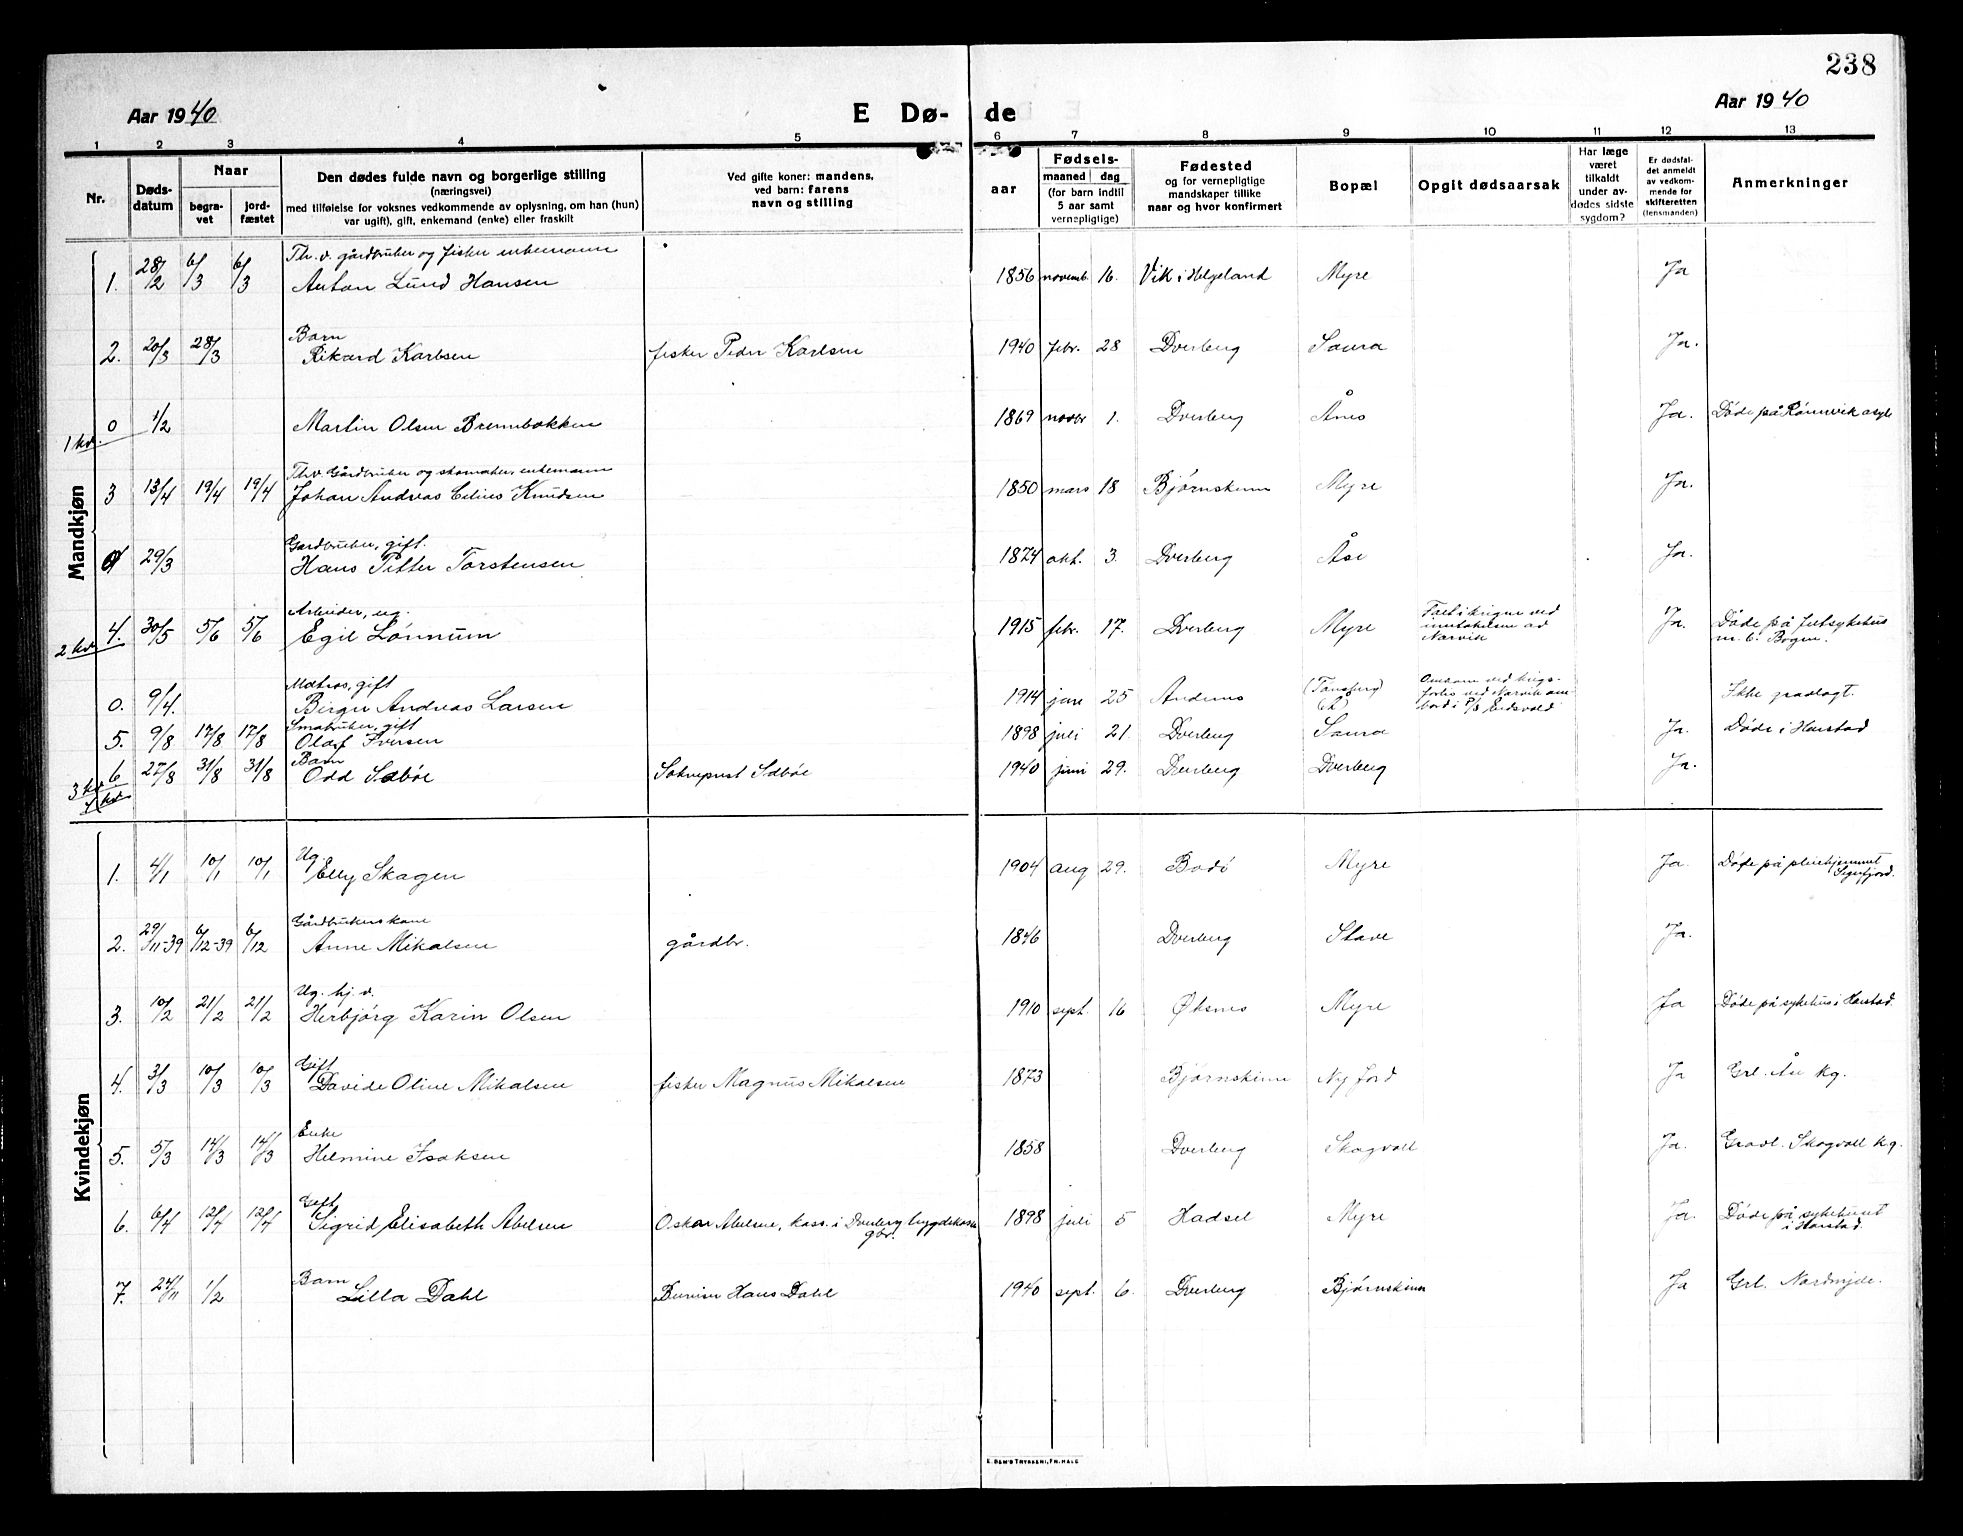 238
Aar 1940 E Dø- de Aar 1940
1 2 3 4 5 6 7 8 9 10 11 12 13
Nr.
Døds-
datum
Naar
begra-
vet
jord-
fæstet
Den dødes fulde navn og borgerlige stilling
(næringsvei)
med tilføielse for voksnes vedkommende av oplysning, om han (hun)
var ugift), gift, enkemand (enke) eller fraskilt
Ved gifte koner: mandens,
ved barn: farens
navn og stilling
aar
Fødsels-
maaned dag
(for barn indtil
5 aar samt
vernepligtige)
Fødested
og for vernepligtige
mandskaper tillike
naar og hvor konfirmert
Bopæl
Opgit dødsaarsak
Har læge
været
tilkaldt
under av-
dødes sidste
sygdom?
Er dødsfal-
det anmeldt
av vedkom-
mende for
skifteretten
(lensmanden)
Anmerkninger
Mandkjøn
Th. v. gårdbruker og fisker enkemann
1. 28/2 6/3 6/3 Anton Lund Hansen 1856 novemb. 16. Vik i Helgeland Myre Ja
Barn
2. 20/3 28/3 Rikard Karlsen fisker Peder Karlsen 1940 febr. 28 Dverberg Saura Ja.
0 1/2 Martin Olsen Brennbakken 1869 novbr 1. Dverberg Ånes Ja. Døde på Rønvik asyl
1 kv.
Thv. Gårdbruker og skomaker, enkemann
3 13/4 19/4 19/4 Johan Andreas Celius Knudsen 1850 mars 18 Bjørnskinn Myre Ja.
Gårdbruker, gift.
0 29/3 Hans Petter Torstensen 1874 okt. 3. Dverberg Åse Ja.
Arbeider, ug.
4. 30/5 5/6 5/6 Egil Lønnum 1915 febr. 17. Dverberg Myre Falt i krigen ved
Narvik Ja. Døde på feltsykehus
Bogen.
2 kv.
Matros, gift
0. 9/4. Birger Andreas Larsen 1914 25 Andenes (Tønsberg) Omkom ved krigs-
forlis ved Narvik om-
bord i P/S Eidsvold Ikke gravlagt.
Småbruker, gift
5. 9/8 17/8 17/8 Olaf Iversen 1898 juli 21. Dverberg Saura Ja. Døde i Harstad
Barn
6 27/8 31/8 31/8 Odd Sæbøe Sokneprest Sæbøe 1940 juni 29. Dverberg Dverberg Ja.
3 kv
4 kv.
Kvindekjøn
Ug.
1. 4/1 10/1 10/1 Elly Skagen 1904 aug 29. Bodö Myre Ja. Døde på pleiehjemmet
Sigerfjord.
Gårdbrukerskone
2. 29/11-39 6/12-39 6/12 Anne Mikalsen gårdbr. 1846 Dverberg Stave Ja.
Ug. hj. v.
3. 10/2 21/2 21/2 Herbjörg Karin Olsen 1910 sept. 16 Øksnes Myre Ja Døde på sykehus i Harstad.
Gift
4. 3/3 10/3 10/3 Davide Oline Mikalsen fisker Magnus Mikalsen 1873 Bjørnskinn Nyjord Ja Grl. Åse kg.
Enke
5. 5/3 14/3 14/3 Helmine Isaksen 1858 Dverberg Skogvoll Ja. Gravl. Skogvoll kg.
Gift
6. 6/4 12/4 12/4 Sigrid Elisabeth Abelsen Oskar Abelsen, kass. i Dverberg bygdekasse
gbr. 1898 juli 5 Hadsel Myre Ja. Døde på sykehuset
i Harstad.
Barn
7. 24/11 1/2 Lilla Dahl Hans Dahl 1940 sept. 6. Dverberg Bjørnskinn Ja Grl. Nordmjele.
E. SEM'S TRYKKERI, FR.HALD